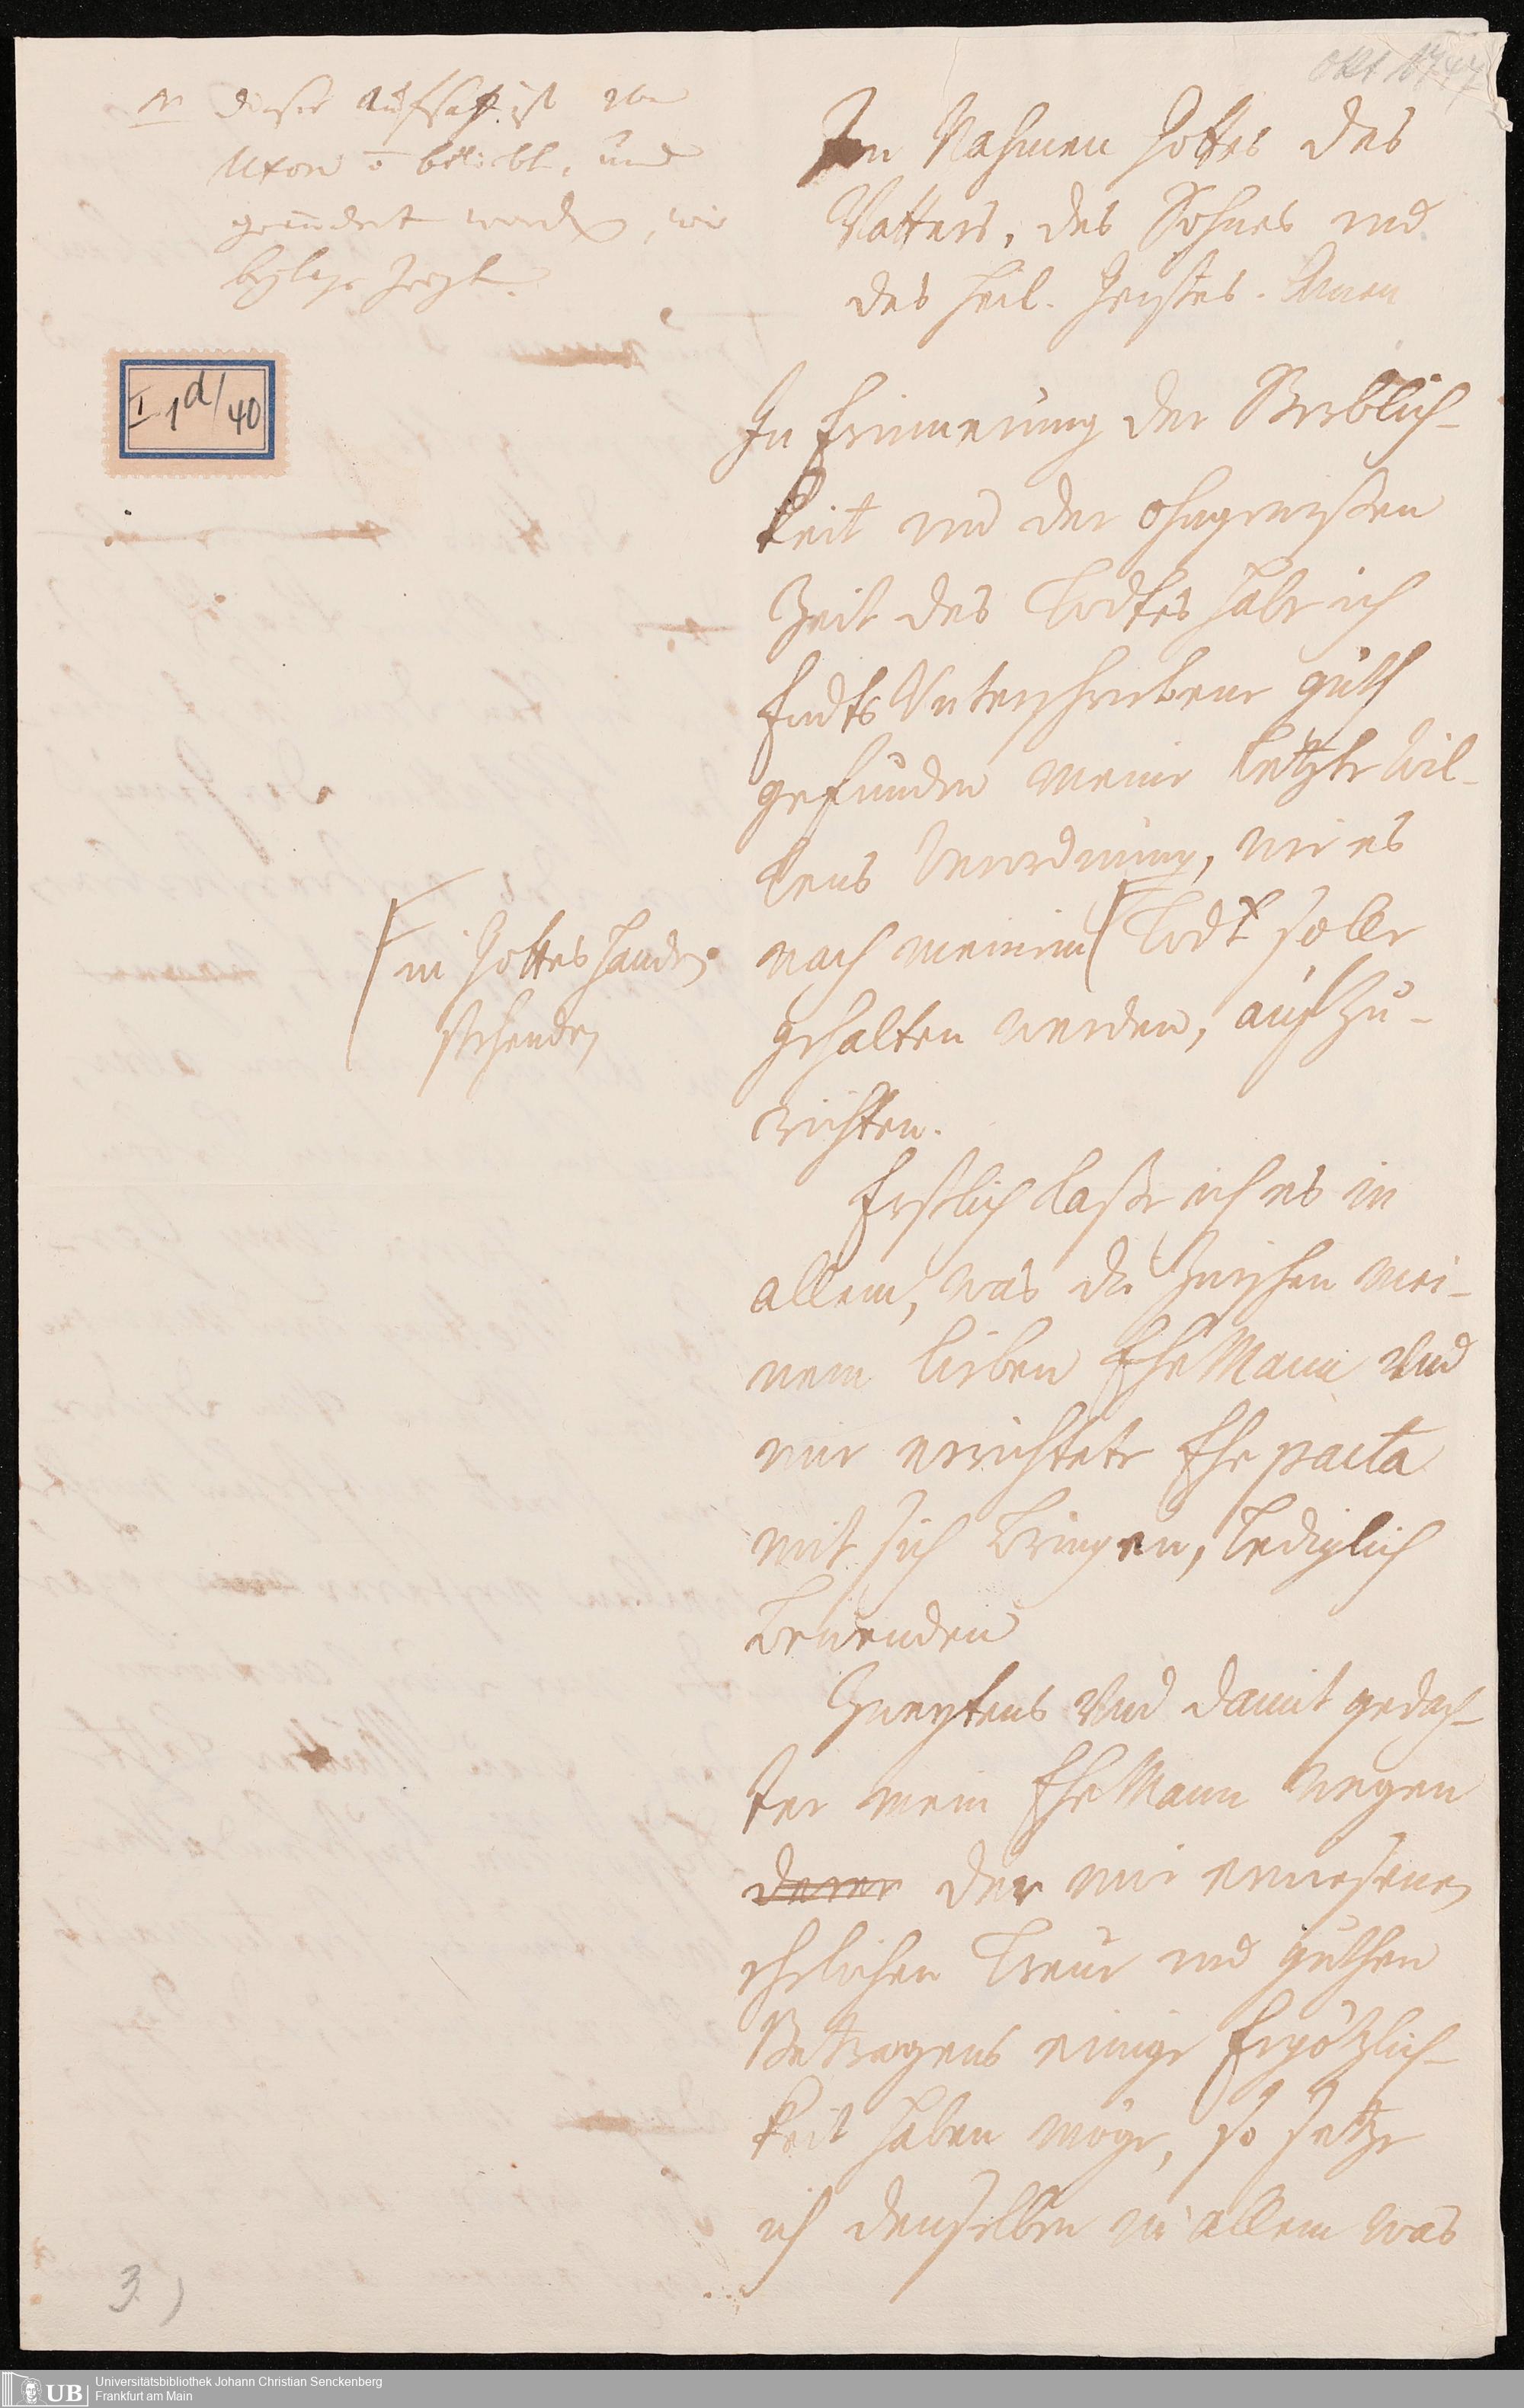 Okt 1747
NB dieser Aufsatz ist von
Uxore ō beliebt, und
geändert worden, wie
beylage zeigt.
I 1 d/40
Im Nahmen Gottes des
Vatters, des Sohnes und
des heil. Geistes. Amen
In Erinnerung der Sterblich-
keit und der ohngewißen
Zeit des Todtes habe ich
Endts Unterschriebene guth
gefunden meine letzte Wil-
lens Verordnung, wie es
nach meinem [ Todt solle
[ in Gottes Handen
stehenden
gehalten werden, auffzu-
richten.
Erstlich laße ich es in
allem, was die zwischen mei-
nem lieben EheMann und
mir errichtete Ehe pacta
mit sich bringen, lediglich
bewenden
Zweytens und damit gedach-
ter mein EheMann wegen
derer der mir erwiesenen
ehelichen Treue und guthen
Betragens einige Ergötzlich-
keit haben möge, so setze
ich denselben in allem was
3)
UB
Universitätsbibliothek Johann Christian Senckenberg
Frankfurt am Main